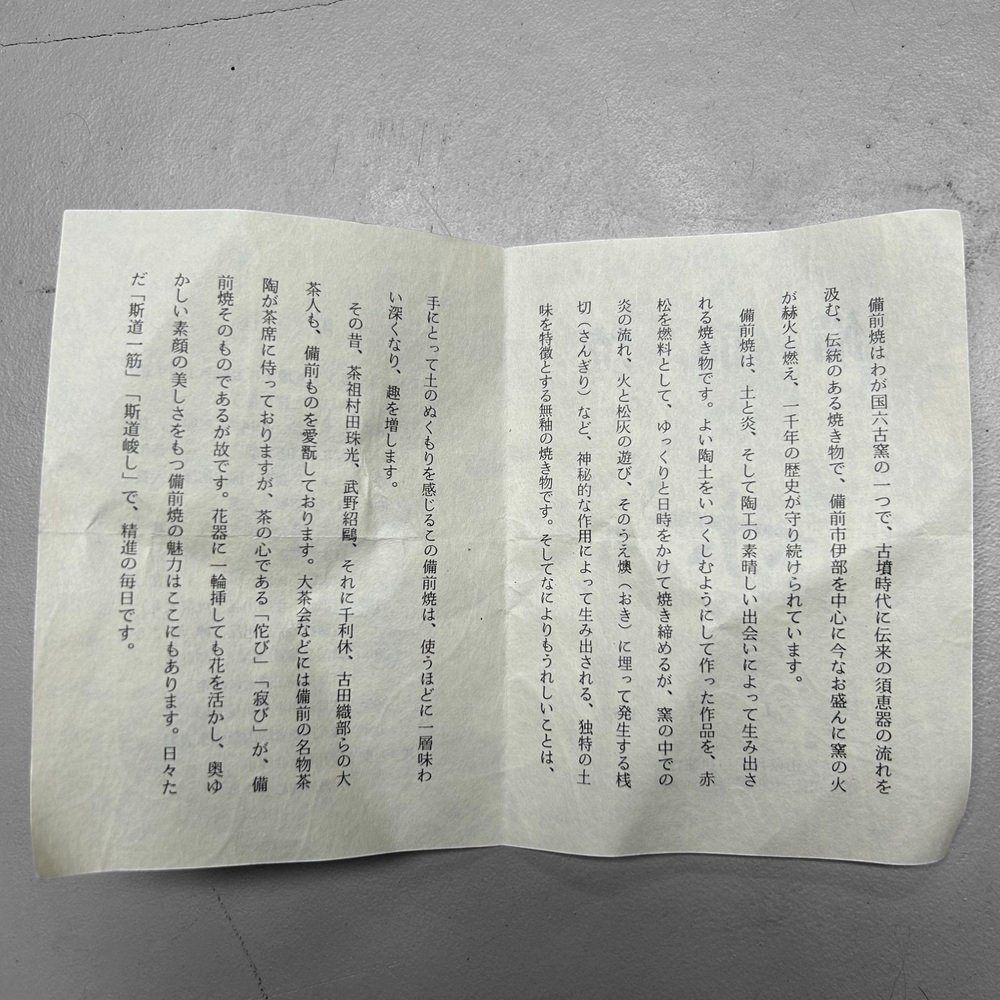 備前焼はわが国六古窯の一つで、古墳時代に伝来の須恵器の流れを
汲む、伝統のある焼き物で、備前市伊部を中心に今なお盛んに窯の火
が赫火と燃え、一千年の歴史が守り続けられています。
備前焼は、土と炎、そして陶工の素晴しい出会いによって生み出さ
れる焼き物です。よい陶土をいつくしむようにして作った作品を、赤
松を燃料として、ゆっくりと日時をかけて焼き締めるが、窯の中での
炎の流れ、火と松灰の遊び、そのうえ燠（おき）に埋って発生する桟
切（さんぎり）など、神秘的な作用によって生み出される、独特の土
味を特徴とする無釉の焼き物です。そしてなによりもうれしいことは、
手にとって土のぬくもりを感じるこの備前焼は、使うほどに一層味わ
い深くなり、趣を増します。
その昔、茶祖村田珠光、武野紹鷗、それに千利休、古田織部らの大
茶人も、備前ものを愛翫しております。大茶会などには備前の名物茶
陶が茶席に侍っておりますが、茶の心である「侘び」「寂び」が、備
前焼そのものであるが故です。花器に一輪挿しても花を活かし、奥ゆ
かしい素顔の美しさをもつ備前焼の魅力はここにもあります。日々た
だ「斯道一筋」「斯道峻し」で、精進の毎日です。